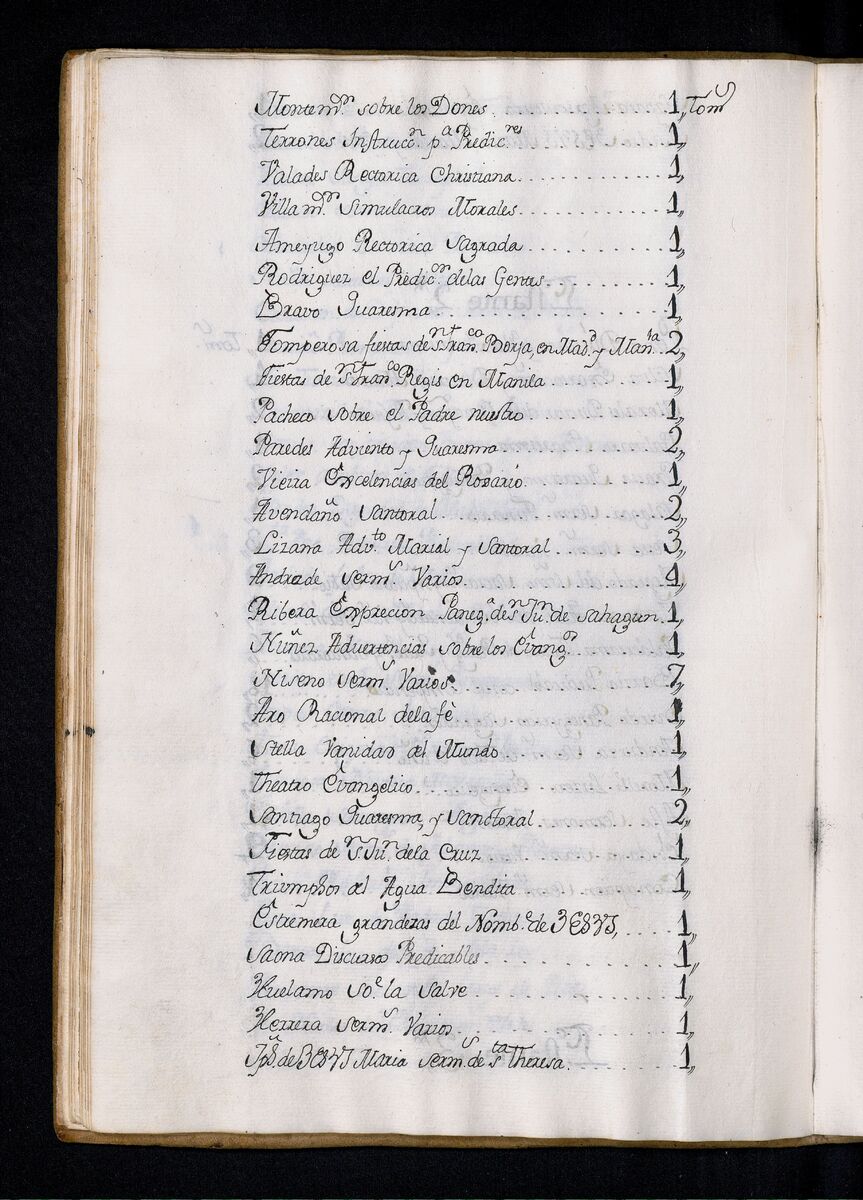 Montem.ᵒʳ sobre los Dones. 1,, Tom.ˢ
Terrones Instrucc.ⁿ p.ᵃ Predic.ʳᵉˢ 1,,
Valades Rectorica Christiana. 1,,
Villam.ᵒʳ Simulacros Morales. 1,,
Ameyugo Rectorica Sagrada 1,,
Rodriguez el Predic.ᵒʳ delas Gentes. 1,,
Bravo Quaresma 1,,
Tomperosa fiestas de Sⁿ Fran.ᶜᵒ Borja, en Mad.ᵈ y Man.ˡᵃ 2,,
Fiestas de Sⁿ Fran.ᶜᵒ Regis en Manila 1,,
Pacheco sobre el Padre nuestro. 1,,
Paredes Adviento y Quaresma 2,,
Vieira Excelencias del Rosario. 1,,
Avendaño Santoral. 2,,
Lizana Adv.ᵗᵒ Marial y Santoral. 3,,
Andrade Serm.ˢ Varios. 4,,
Ribera Exprecion Paneg.ᵃ de Sⁿ Juⁿ. de Sahagun. 1,,
Nuñez Advertencias sobre los Evang.ᵒˢ 1,,
Niseno Serm.ˢ Varios. 7,,
Axo Racional dela fè 1,,
Stella Vanidad del Mundo 1,,
Theatro Evangelico. 1,,
Santiago Quaresma, y Sanctoral 2,,
Fiestas de Sⁿ Juⁿ. dela Cruz 1,,
Triumphos del Agua Bendita 1,,
Estremera grandezas del Nomb.ᵉ de JESUS, 1,,
Saona Discursos Predicables. 1,,
Huelamo So.ᵉ la Salve 1,,
Herrera Serm.ˢ Varios. 1,,
Jph. de JESUS Maria Serm.ˢ de Sᵗᵃ Theresa. 1,,